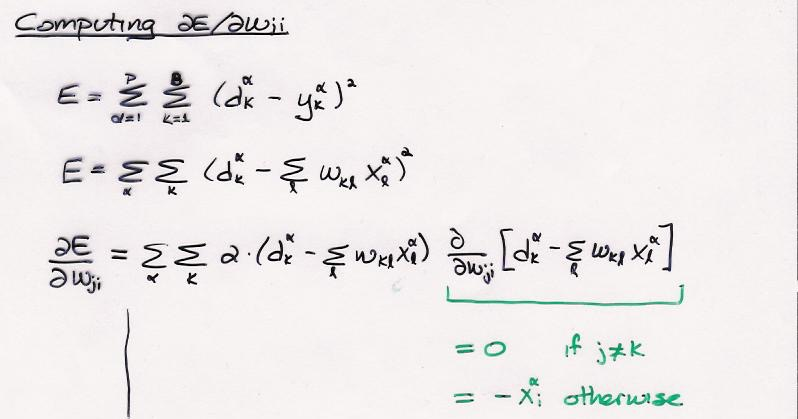 Computing ∂E/∂w_ji
E = Σ_{α=1}^{P} Σ_{k=1}^{B} (d_k^α − y_k^α)²
E = Σ_α Σ_k (d_k^α − Σ_l w_kl x_l^α)²
∂E/∂w_ji = Σ_α Σ_k 2·(d_k^α − Σ_l w_kl x_l^α) ∂/∂w_ji [d_k^α − Σ_l w_kl x_l^α]
= 0 if j≠k
= −x_i^α otherwise